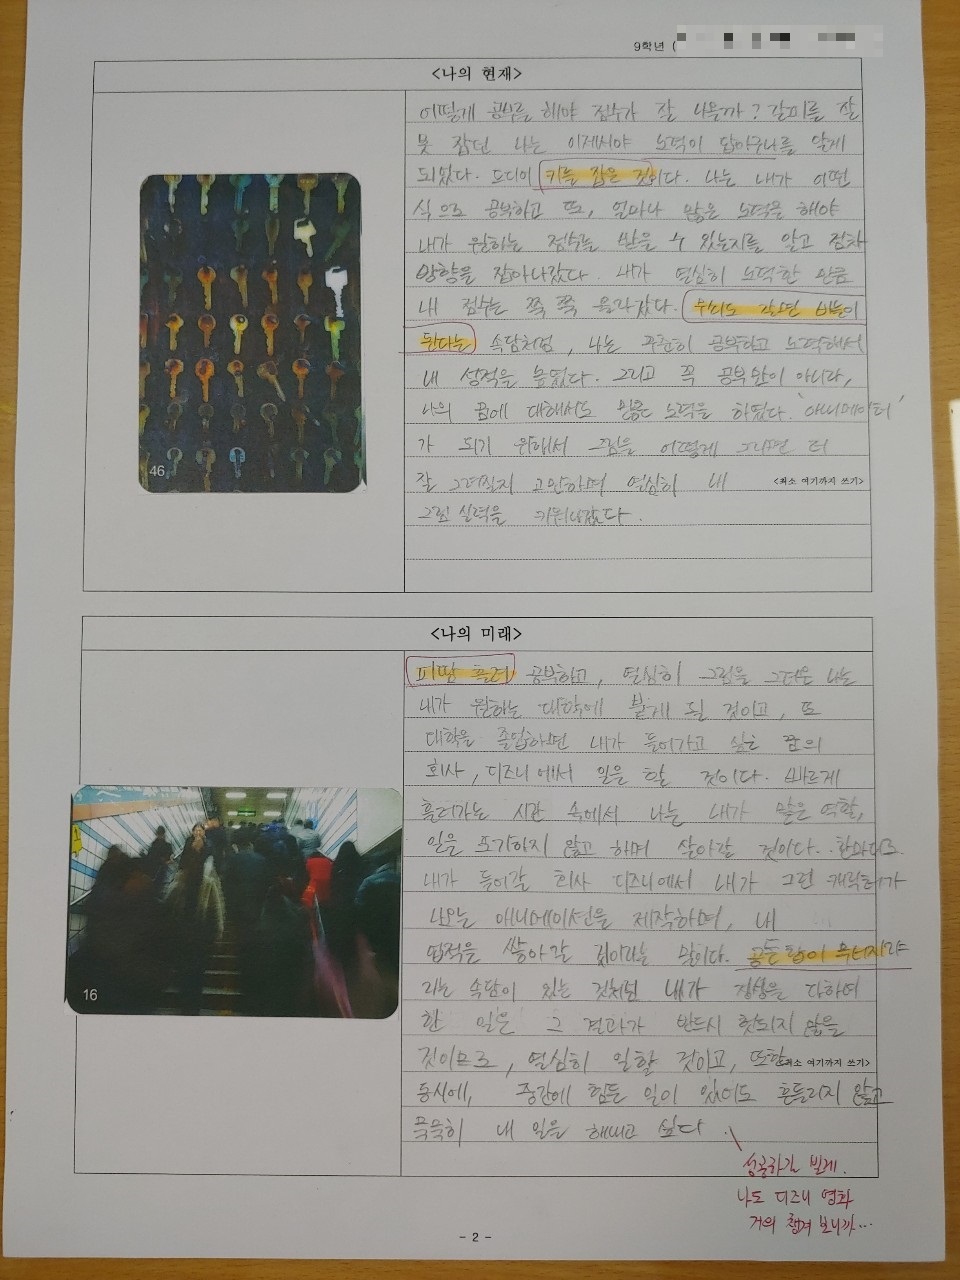 9학년 (
<나의 현재>
어떻게 공부를 해야 점수가 잘 나올까? 갈피를 잘
못 잡던 나는 이제서야 노력이 답이구나를 알게
되었다. 드디어 키를 잡은 것이다. 나는 내가 어떤
식으로 공부하고 또, 얼마나 많은 노력을 해야
내가 원하는 점수를 받을 수 있는지를 알고 점차
방향을 잡아나갔다. 내가 열심히 노력한 만큼
내 점수는 쭉 쭉 올라갔다. 무쇠도 갈면 바늘이
된다는 속담처럼, 나는 꾸준히 공부하고 노력해서
내 성적을 높였다. 그리고 꼭 공부만이 아니라,
나의 꿈에 대해서도 많은 노력을 하였다. '애니메이터'
가 되기 위해서 그림을 어떻게 그리면 더
잘 그려질지 고안하며 열심히 내
<최소 여기까지 쓰기>
그림 실력을 키워나갔다.
46
<나의 미래>
피땀 흘려 공부하고, 열심히 그림을 그려온 나는
내가 원하는 대학에 붙게 될 것이고, 또
대학을 졸업하면 내가 들어가고 싶은 꿈의
회사, 디즈니에서 일을 할 것이다. 빠르게
흘러가는 시간 속에서 나는 내가 맡은 역할,
일을 포기하지 않고 하며 살아갈 것이다. 한마디로
내가 들어갈 회사 디즈니에서 내가 그린 캐릭터가
나오는 애니메이션을 제작하며, 내
업적을 쌓아갈 것이라는 말이다. 공든 탑이 무너지랴
라는 속담이 있는 것처럼 내가 정성을 다하여
한 일은 그 결과가 반드시 헛되지 않을
것이므로, 열심히 일할 것이고, 또한
<최소 여기까지 쓰기>
동시에, 중간에 힘든 일이 있어도 흔들리지 않고
묵묵히 내 일을 해내고 싶다.
16
성공하길 빌게.
나도 디즈니 영화
거의 챙겨 보니까...
- 2 -